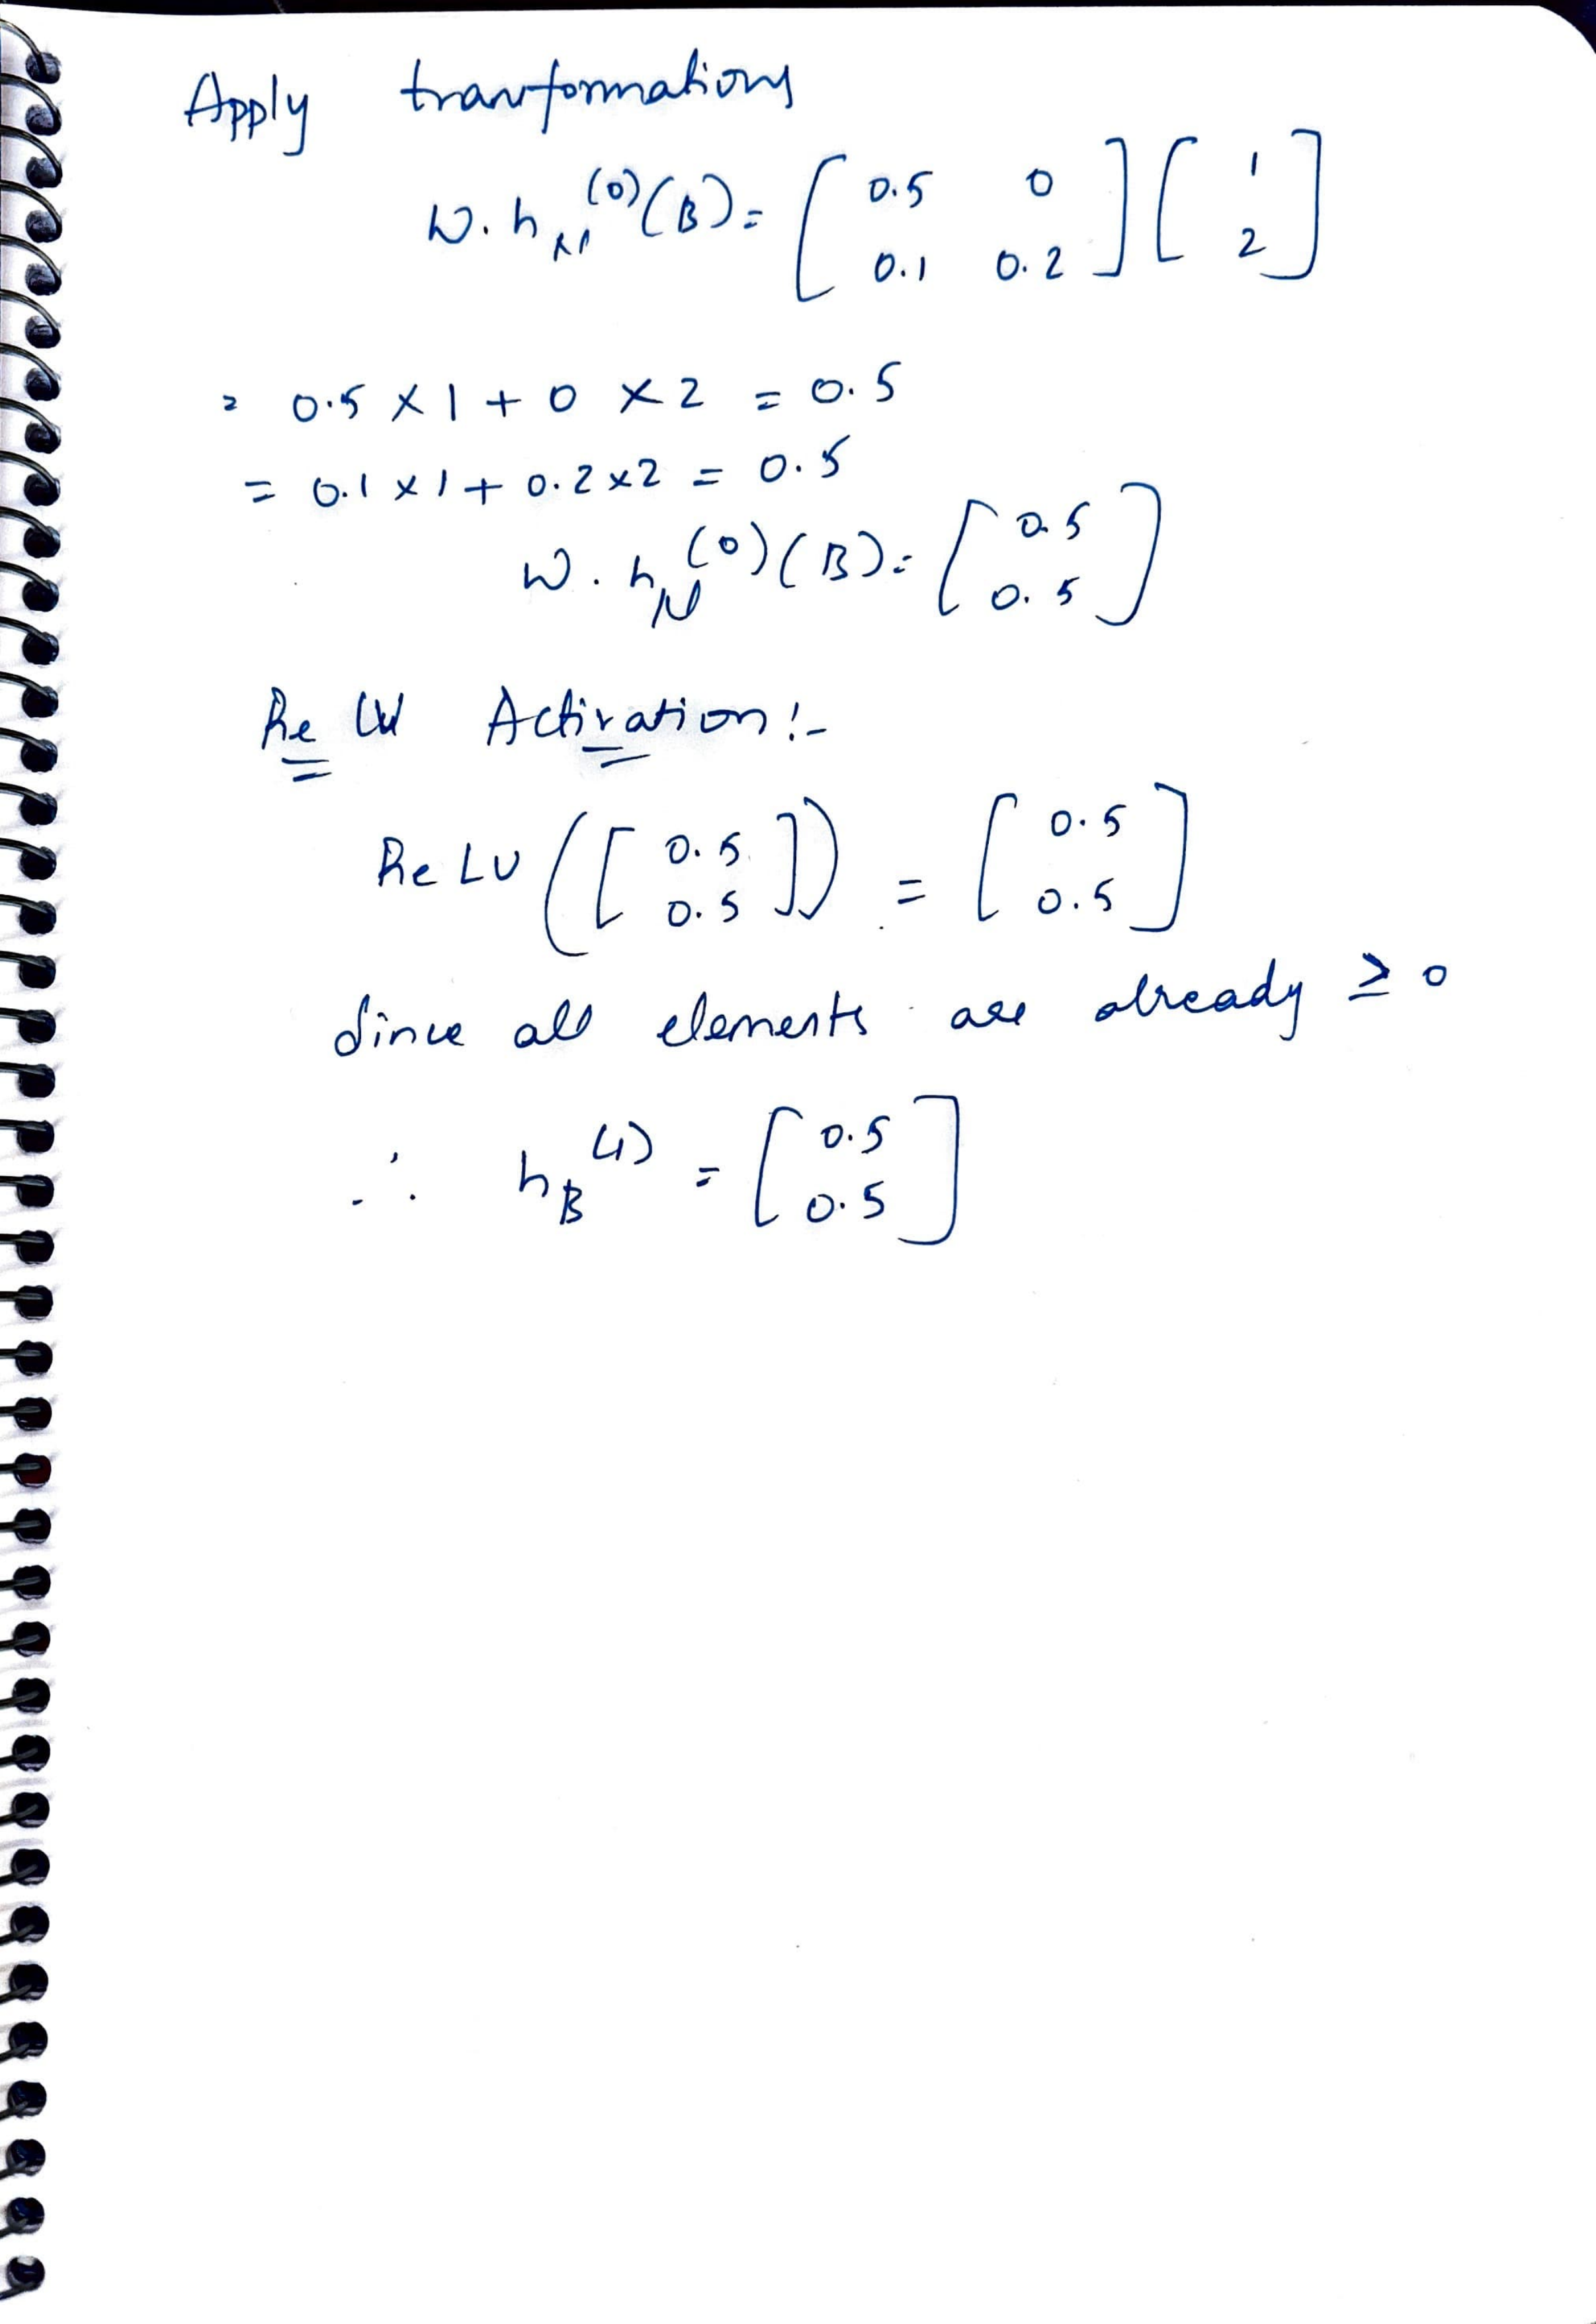 Apply transformations
W. h_N^(0)(B) = [ 0.5 0 ; 0.1 0.2 ] [ 1 ; 2 ]
= 0.5 × 1 + 0 × 2 = 0.5
= 0.1 × 1 + 0.2 × 2 = 0.5
W. h_N^(0)(B) = [ 0.5 ; 0.5 ]
ReLU Activation:-
ReLU ( [ 0.5 ; 0.5 ] ) = [ 0.5 ; 0.5 ]
Since all elements are already ≥ 0
∴ h_B^(1) = [ 0.5 ; 0.5 ]